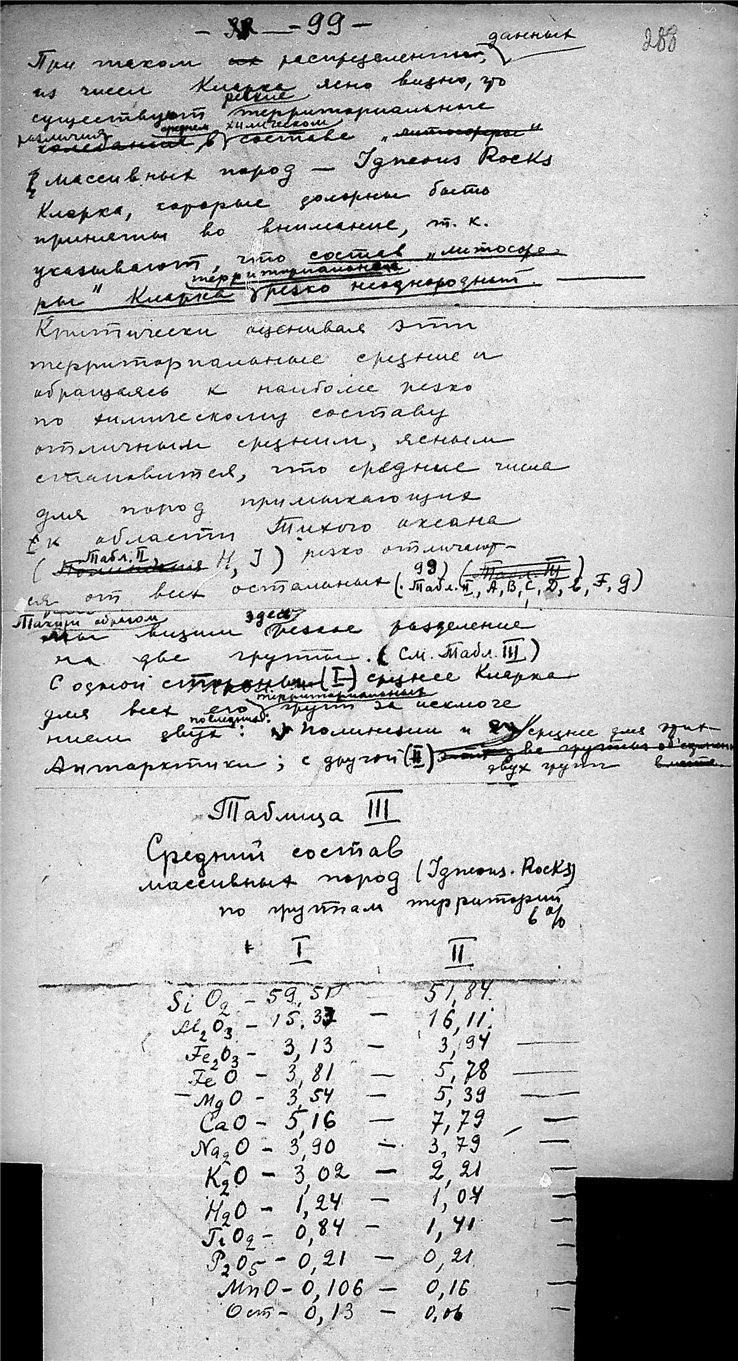 — 99 —
288
При таком распределении данных
из чисел Кларка ясно видно, что
существуют резкие территориальные
различия в среднем химическом составе "литосферы"
массивных пород — Igneous Rocks
Кларка, которые должны быть
приняты во внимание, т.к.
указывают что состав "литосфе-
ры" Кларка территориально резко неоднородный.
Критически оценивая эти
территориальные средние и
обращаясь к наиболе резко
по химическому составу
отличным средним, ясным
становится, что средние числа
для пород примыкающих
к области Тихого океана
(Табл. II H, J) резко отличают-
ся от всех остальных (Табл. II, A, B, C, D, E, F, g)
Таким образом мы видим здесь резкое разделение
на две группы. (См. Табл. III)
С одной стороны (I) среднее Кларка
для всех его территориальных групп за исключе
нием двух последних: Полинезии и
Антарктики; с другой (II) среднее для этих
двух групп
Таблица III
Средний состав
массивных пород (Igneous. Rocks)
по группам территорий
в %
I II
SiO2 — 59,51 — 51,84.
Al2O3 — 15.33 — 16,11.
Fe2O3 — 3,13 — 3,94
FeO — 3,81 — 5,78
MgO — 3,54 — 5,39
CaO — 5,16 — 7,79
Na2O — 3,90 — 3,79
K2O — 3,02 — 2,21
H2O — 1,24 — 1,04
TiO2 — 0,84 — 1,41
P2O5 — 0,21 — 0,21
MnO — 0,106 — 0,16
Ост — 0,13 — 0,06